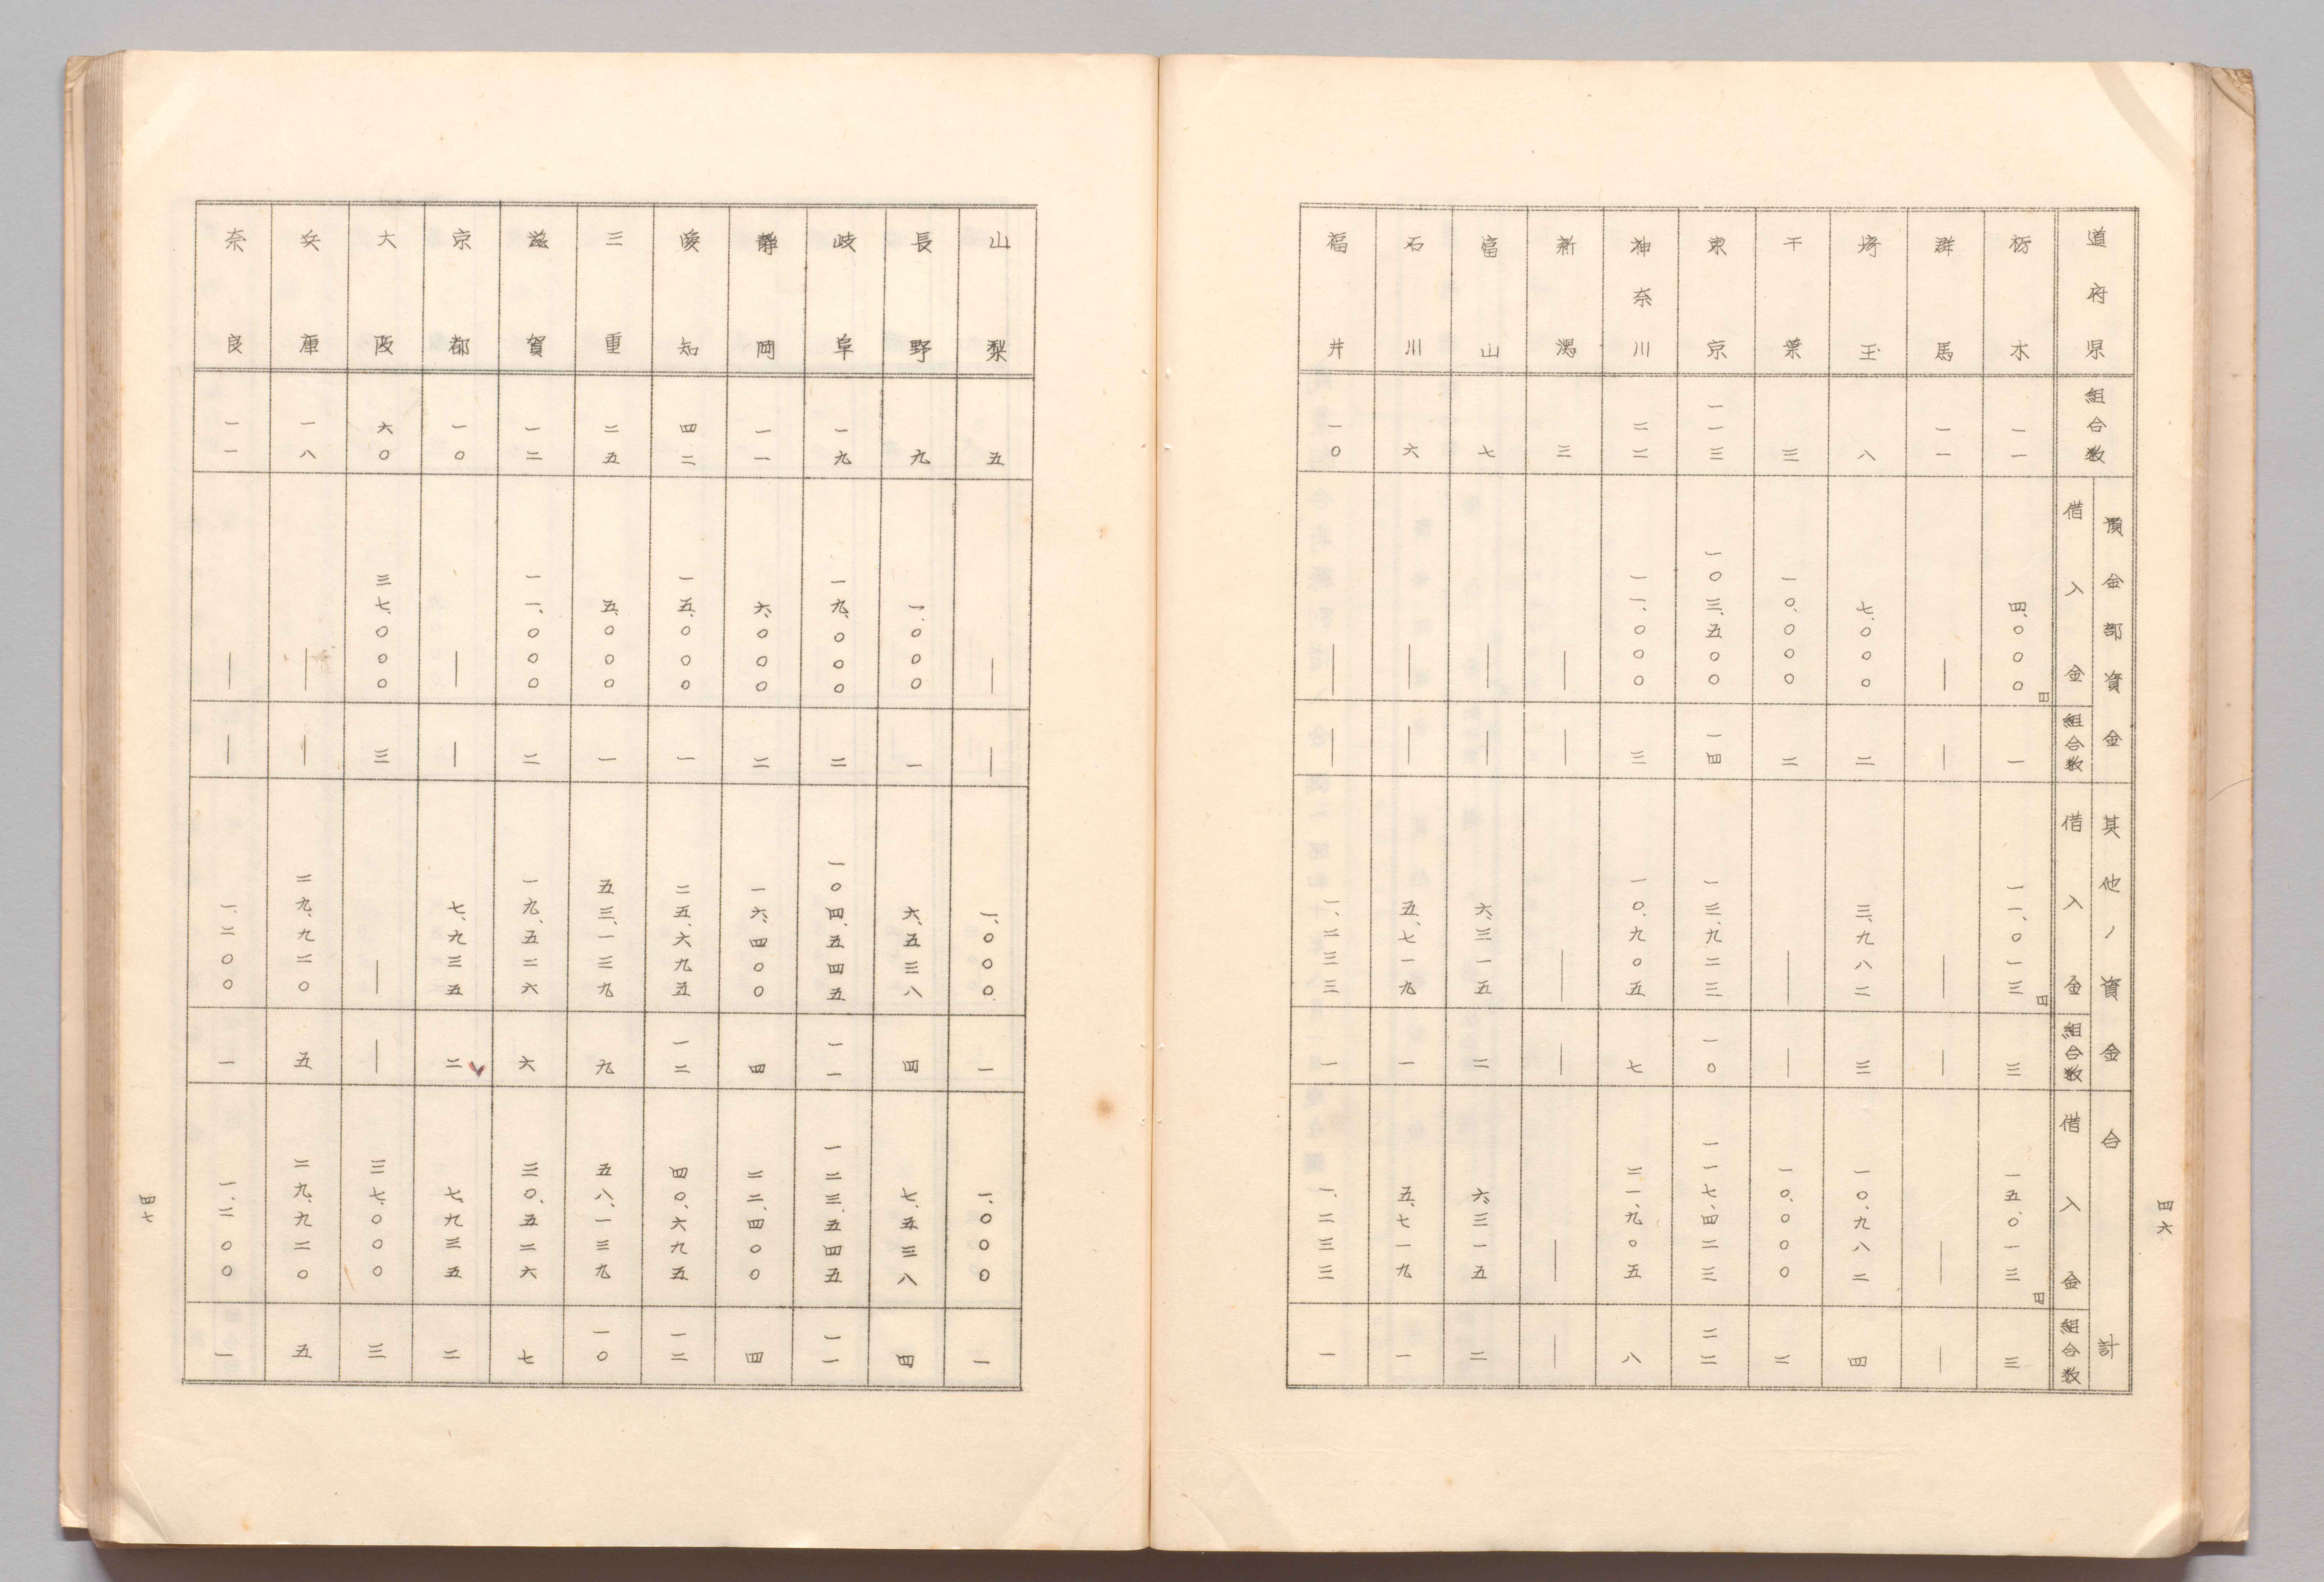 四六
道府県 組合数 預金部資金 其他ノ資金 合計
借入金 組合数 借入金 組合数 借入金 組合数
栃木 一一 四、〇〇〇円 一 一一、〇一三円 三 一五、〇一三円 三
群馬 一一 ― ― ― ― ― ―
埼玉 八 七、〇〇〇 二 三、九八二 三 一〇、九八二 四
千葉 三 一〇、〇〇〇 二 ― ― 一〇、〇〇〇 二
東京 一一三 一〇三、五〇〇 一四 一三、九二三 一〇 一一七、四二三 二二
神奈川 二二 一一、〇〇〇 三 一〇、九〇五 七 二一、九〇五 八
新潟 三 ― ― ― ― ― ―
富山 七 ― ― 六、三一五 二 六、三一五 二
石川 六 ― ― 五、七一九 一 五、七一九 一
福井 一〇 ― ― 一、二三三 一 一、二三三 一
山梨 五 ― ― 一、〇〇〇 一 一、〇〇〇 一
長野 九 一、〇〇〇 一 六、五三八 四 七、五三八 四
岐阜 一九 一九、〇〇〇 二 一〇四、五四五 一一 一二三、五四五 一一
静岡 一一 六、〇〇〇 二 一六、四〇〇 四 二二、四〇〇 四
愛知 四二 一五、〇〇〇 一 二五、六九五 一二 四〇、六九五 一二
三重 二五 五、〇〇〇 一 五三、一三九 九 五八、一三九 一〇
滋賀 一二 一一、〇〇〇 二 一九、五二六 六 三〇、五二六 七
京都 一〇 ― ― 七、九三五 二 七、九三五 二
大阪 六〇 三七、〇〇〇 三 ― ― 三七、〇〇〇 三
兵庫 一八 ― ― 二九、九二〇 五 二九、九二〇 五
奈良 一一 ― ― 一、二〇〇 一 一、二〇〇 一
四七